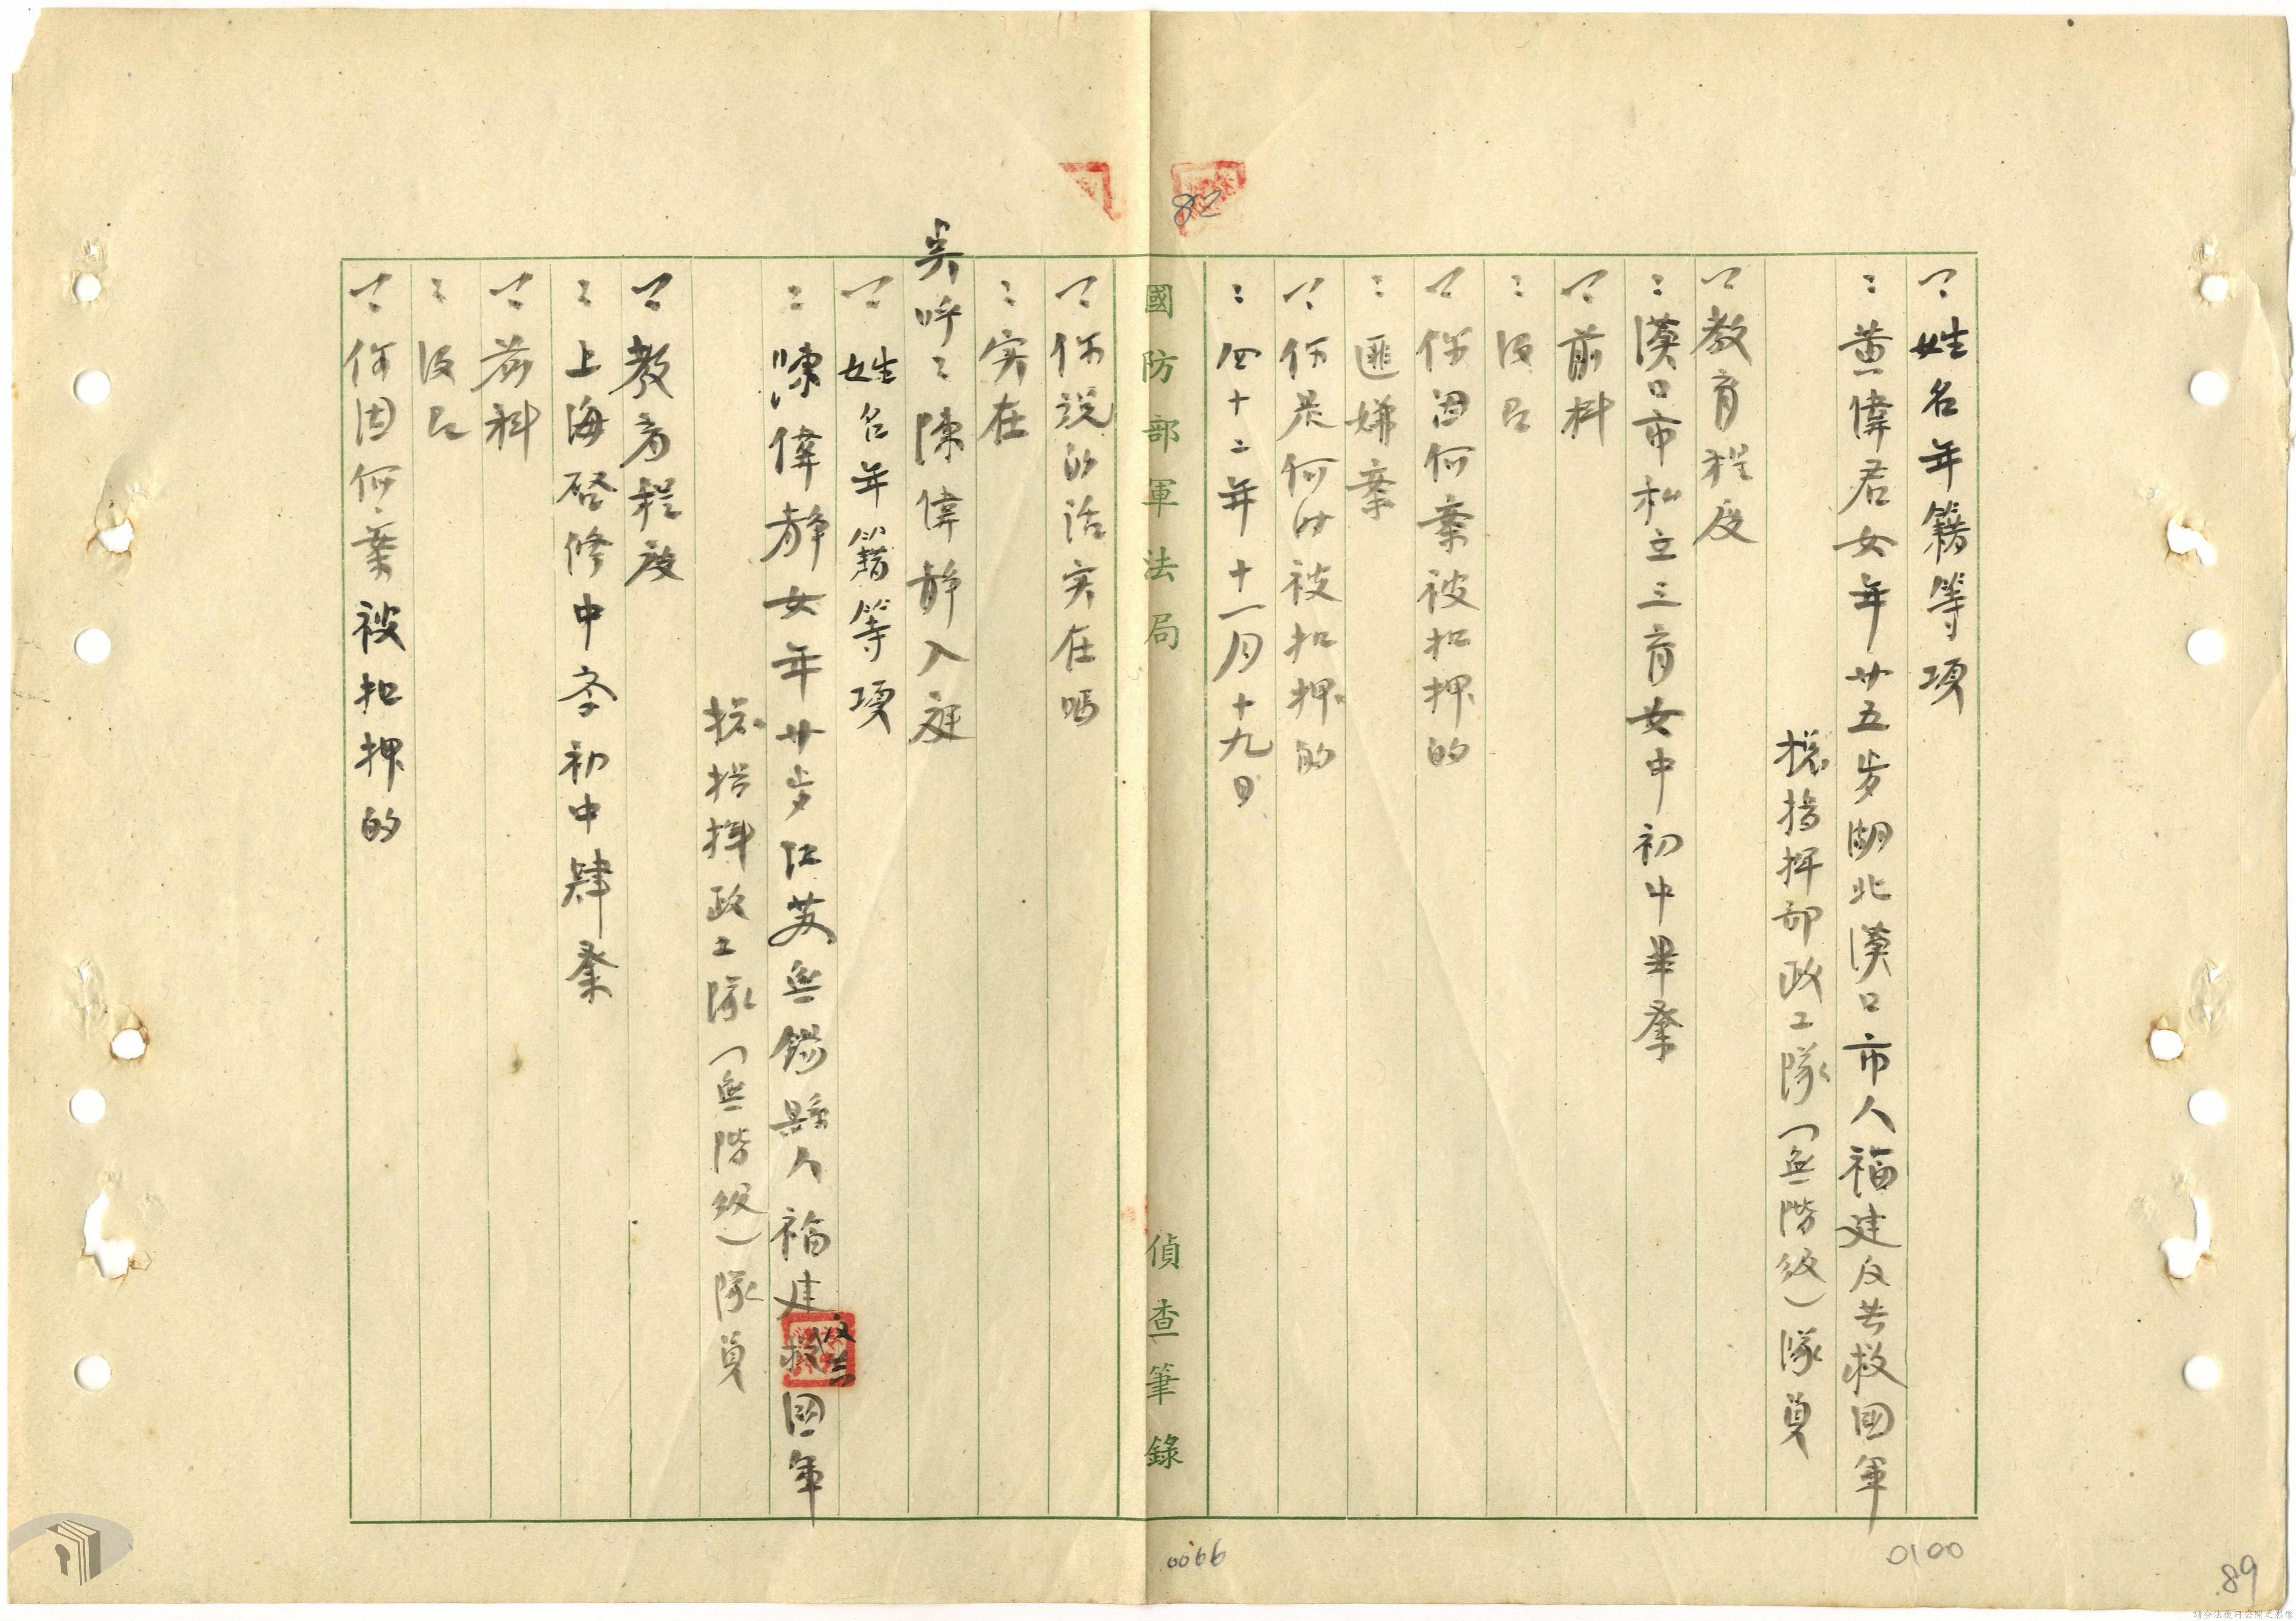 82
姓名年籍等項
黃偉君女年廿五岁湖北漢口市人福建反共救國軍
指揮部政工隊(無階級)隊員
教育程度
漢口市私立三育女中初中畢業
前科
沒有
你因何案被扣押的
匪嫌案
你是何时被扣押的
四十二年十一月十九日
國防部軍法局 偵查筆錄
你說的话实在嗎
实在
吳呼陳偉靜入庭
姓名年籍等項
陳偉靜女年廿岁江苏無錫縣人福建反共救國軍
指揮政工隊(無階級)隊員
教育程度
上海啓修中学初中肄業
前科
沒有
你因何案被扣押的
0066
0100
89
請合法使用公開之影像